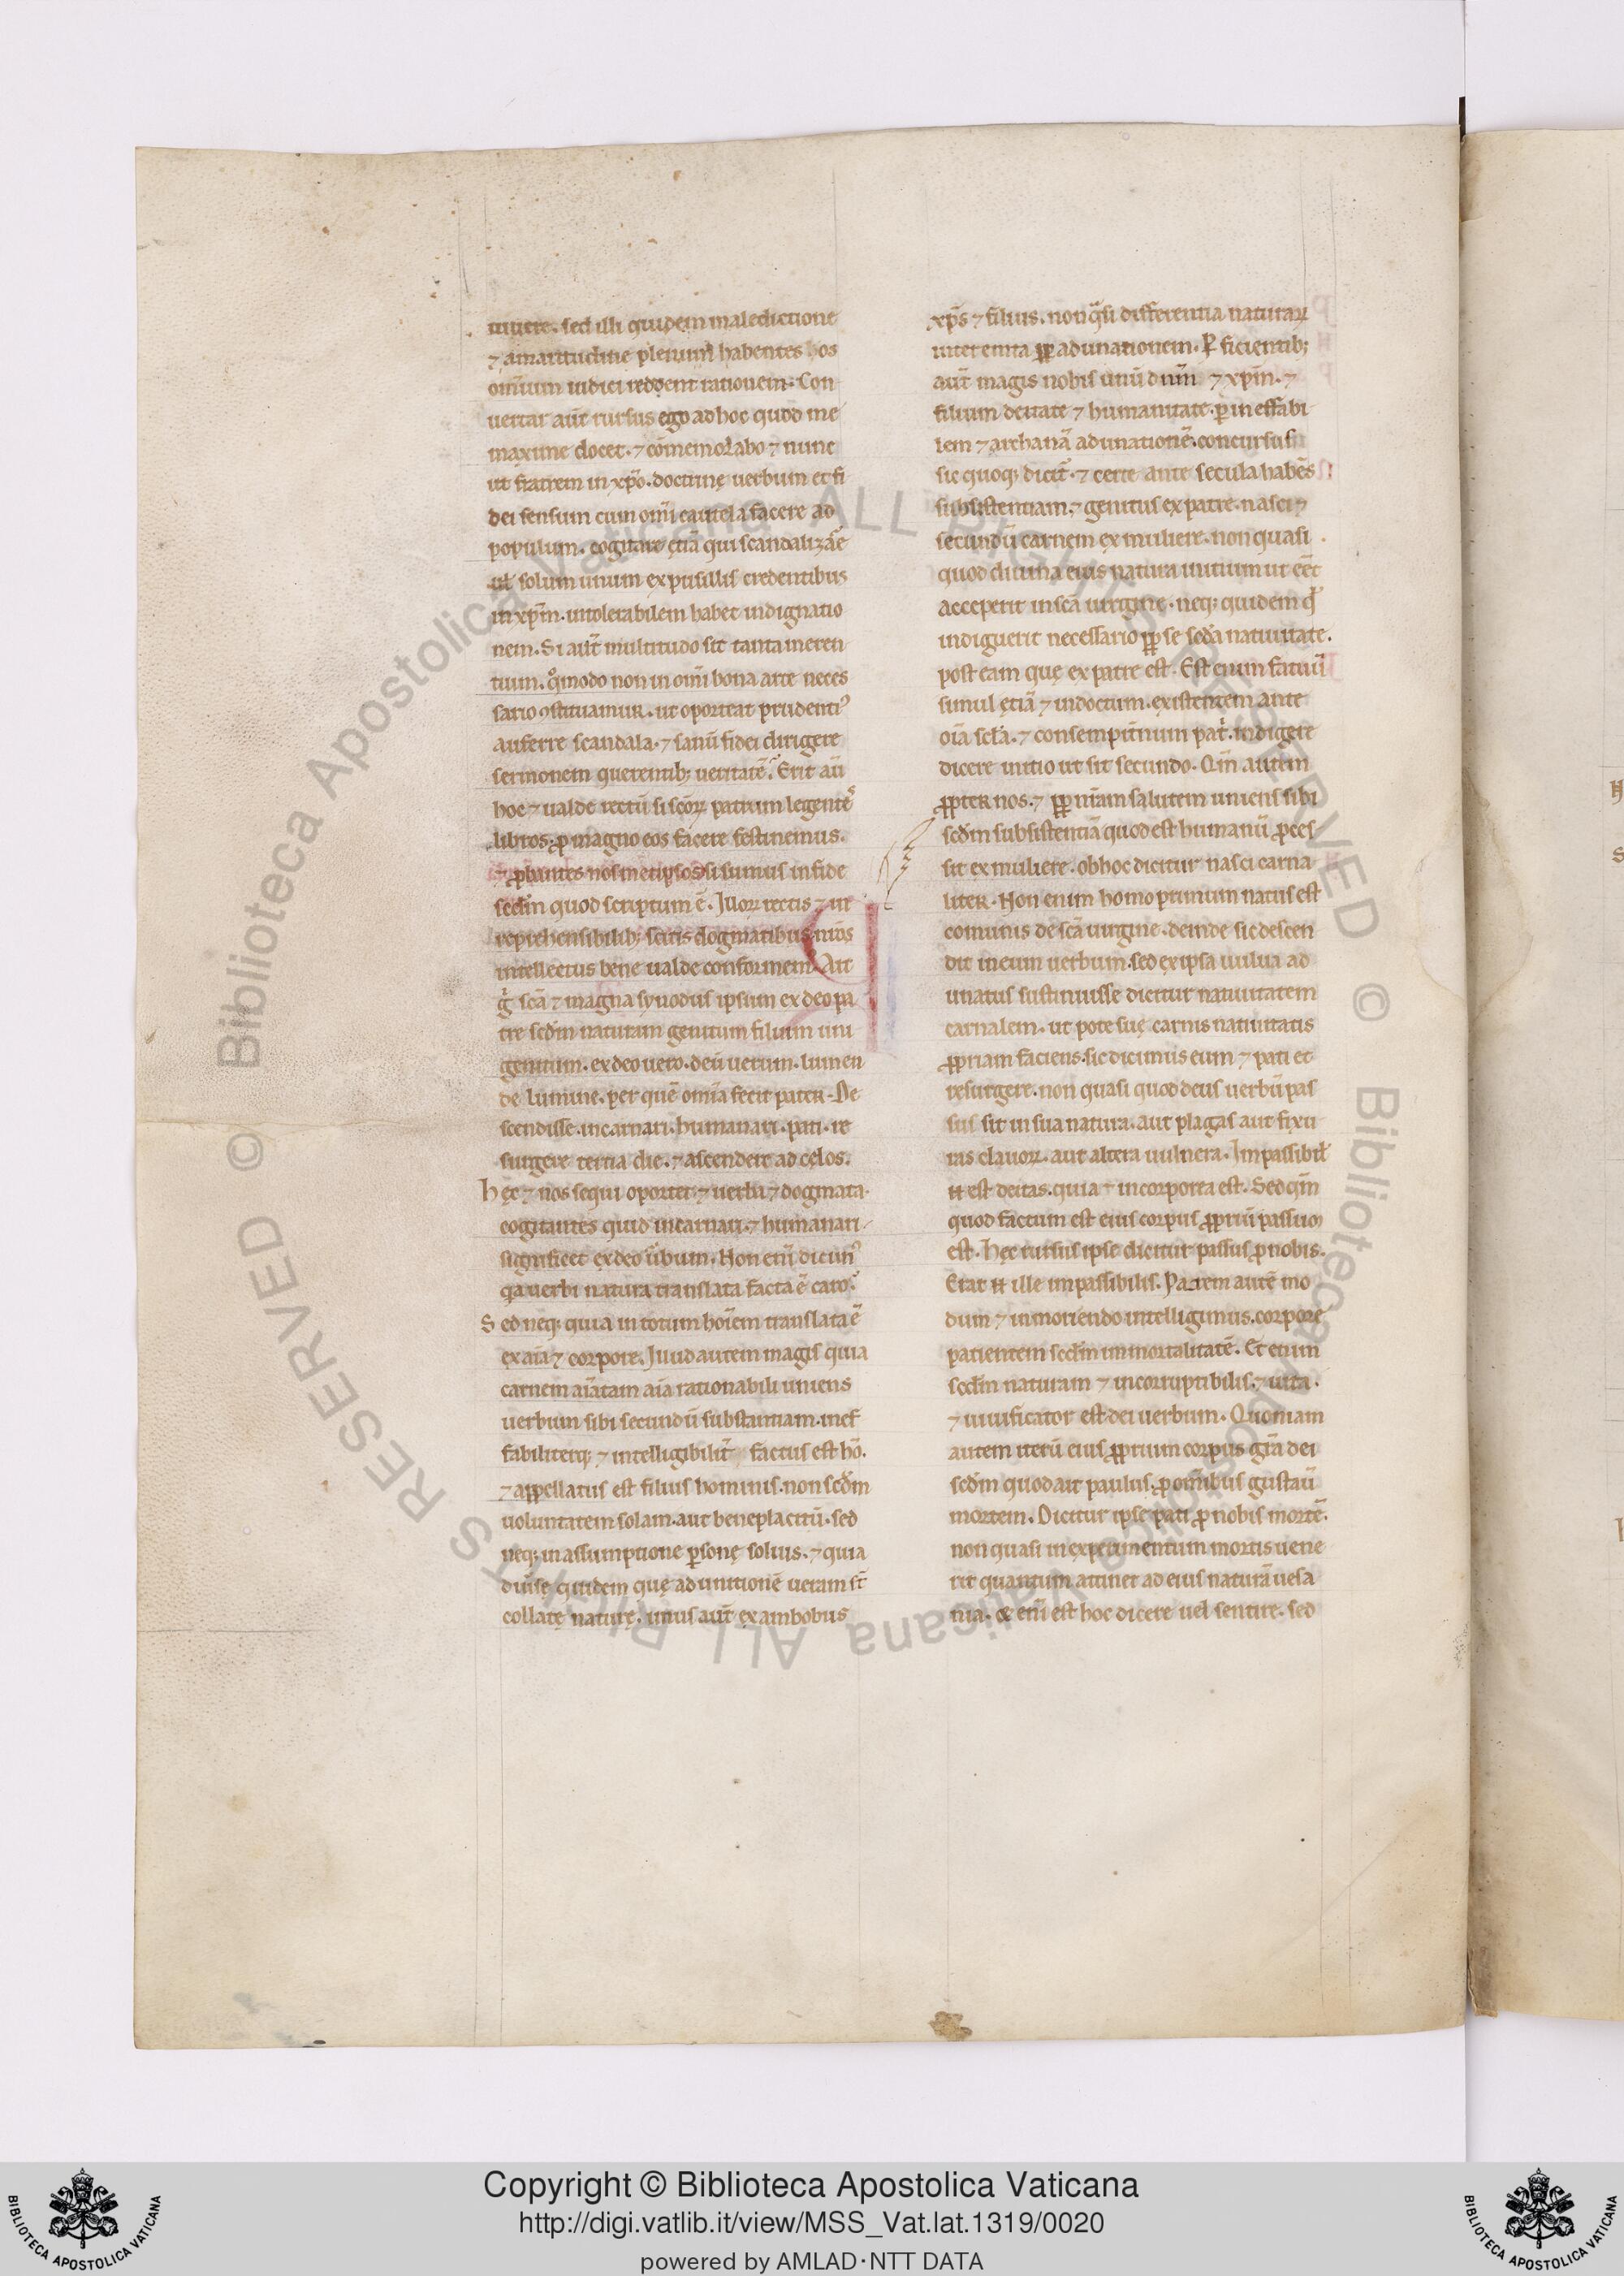 uiuere. sed illi quidem maledictione
⁊ amaritudine plenum habentes hos
om̄ium iudici reddent rationem: Con
uertar aūt rursus ego ad hoc quod me
maxime docet. ⁊ cōmemorabo ⁊ nunc
ut fratrem in xp̄o. doctrinę uerbum et fi
dei sensum cum om̄i cautela facere ad
populum. cogitare etiā qui scandalizāe
ul̄ solum unum ex pusillis credentibus
in xp̄m. intolerabilem habet indignatio
nem. Si aūt multitudo sit tanta meren
tium. qͦmodo non in om̄i bona arte neces
sario ꝯstituamur. ut oporteat prudent᷒
auferre scandala. ⁊ sanū fidei dirigere
sermonem querentib; ueritatē. Erit aū
hoc ⁊ ualde rectū si scōꝝ patrum legentes
libros. ꝓ magno eos facere festinemus.
⁊ ꝓbantes nosmetipsos si sumus in fide
scd̄m quod scriptum ē. Illoꝝ rectis ⁊ ir
reprehensibilib; scitis dogmatibus nr̄os
intellectus bene ualde conformem. Ait
gͥ scā ⁊ magna synodus ipsum ex deo pa
tre scd̄m naturam genitum filium uni
genitum. ex deo uero. deū uerum. lumen
de lumine. per quē omīa fecit pater. De
scendisse. incarnari. humanari. pati. re
surgere tertia die. ⁊ ascendere ad cęlos.
hęc ⁊ nos sequi oportet ⁊ uerba ⁊ dogmata.
cogitantes quid incarnari. ⁊ humanari
significet ex deo ūbum. Non enī dicim᷒
qa uerbi natura translata facta ē caro.
Sed neq; quia in totum hoīem translata ē
ex aīa ⁊ corpore. Illud autem magis quia
carnem aīatam aīa rationabili uniens
uerbum sibi secundū substantiam. inef
fabiliterq; ⁊ intelligibilit̄ factus est hō.
⁊ appellatus est filius hominis. non scd̄m
uoluntatem solam. aut beneplacitū. sed
neq; in assumptione ꝑsonę solius. ⁊ quia
diuīsę quidem quę ad unitionē ueram st̄
collatę naturę. unus aūt ex ambobus
xp̄s ⁊ filius. non qͣsi differentia naturaꝝ
interempta ꝓpͭ adunationem. Ꝑficientib;
aūt magis nobis unū dnm̄ ⁊ xp̄m. ⁊
filium deitate ⁊ humanitate. ꝑ ineffabi
lem ⁊ archanā adunationē. concursus
sic quoq; dicit̄. ⁊ certe ante secula habēs
subsistentiam. ⁊ genitus ex patre. nasci ⁊
secundū carnem ex muliere. non quasi
quod diuina eius natura initium ut eēt
acceperit in scā uirgine. neq; quidem qͥ
indiguerit necessario ꝓpͭ se scd̄a natiuitate.
post eam que ex patre est. Est enim fatuū
simul etiā ⁊ indoctum. existentem ante
oīa scl̄a. ⁊ consempit̄num patͥ. indigere
dicere initio ut sit secundo. Qm̄ autem
ꝓpter nos. ⁊ ꝓpͭ nr̄am salutem uniens sibi
scd̄m subsistentiā quod est humanū ꝓces
sit ex muliere. ob hoc dicitur nasci carna
liter. Non enim homo primum natus est
comunis de scā uirgine. deinde sic descen
dit in eum uerbum. sed ex ipsa uulua ad
unatus sustinuisse dicitur natiuitatem
carnalem. ut pote suę carnis natiuitatis
ꝓpriam faciens. sic dicimus eum ⁊ pati et
resurgere. non quasi quod deus uerbū pas
sus sit in sua natura. aut plagas aut fixu
ras clauoꝝ. aut altera uulnera. Impassibil̄
n̄ est deitas. quia ⁊ incorporea est. Sed qm̄
quod factum est eius corpus ꝓpriū passum
est. hęc rursus ipse dicitur passus ꝓ nobis.
Erat n̄ ille impassibilis. Pariem autē mo
dum ⁊ in moriendo intelligimus. corpore
patientem scd̄m inmortalitatē. Et enim
scd̄m naturam ⁊ incorruptibilis. ⁊ uita.
⁊ uiuificator est dei uerbum. Quoniam
autem iterū eius ꝓprium corpus gr̄a dei
scd̄m quod ait paulus. ꝓ om̄ibus gustauͭ
mortem. Dicitur ipse pati ꝓ nobis mortē.
non quasi in experimentum mortis uene
rit quantum attinet ad eius naturā uesa
nia. & enī est hoc dicere uel sentire. sed
Copyright © Biblioteca Apostolica Vaticana
http://digi.vatlib.it/view/MSS_Vat.lat.1319/0020
powered by AMLAD·NTT DATA
BIBLIOTECA APOSTOLICA VATICANA
BIBLIOTECA APOSTOLICA VATICANA
© Biblioteca Apostolica Vaticana ALL RIGHTS RESERVED © Biblioteca Apostolica Vaticana ALL RIGHTS RESERVED